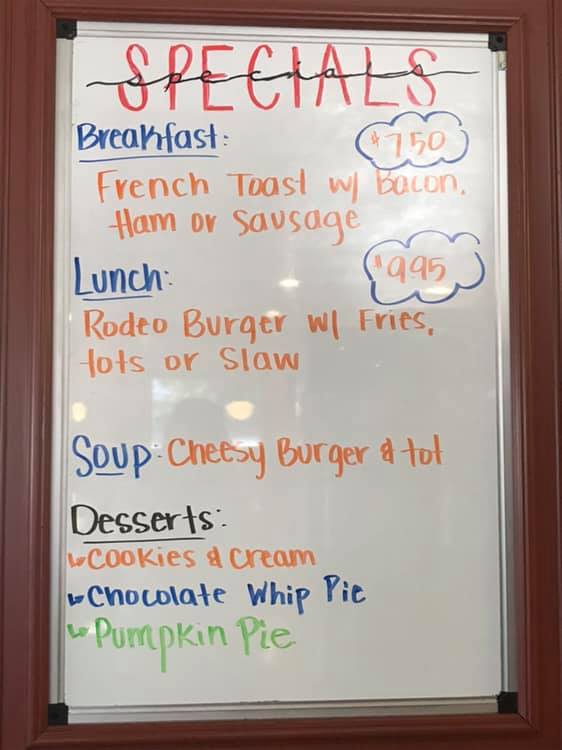 SPECIALS
specials
Breakfast: $7.50
French Toast w/ Bacon,
Ham or Sausage
Lunch: $9.95
Rodeo Burger w/ Fries,
tots or Slaw
Soup: Cheesy Burger & tot
Desserts:
↳Cookies & Cream
↳Chocolate Whip Pie
↳Pumpkin Pie